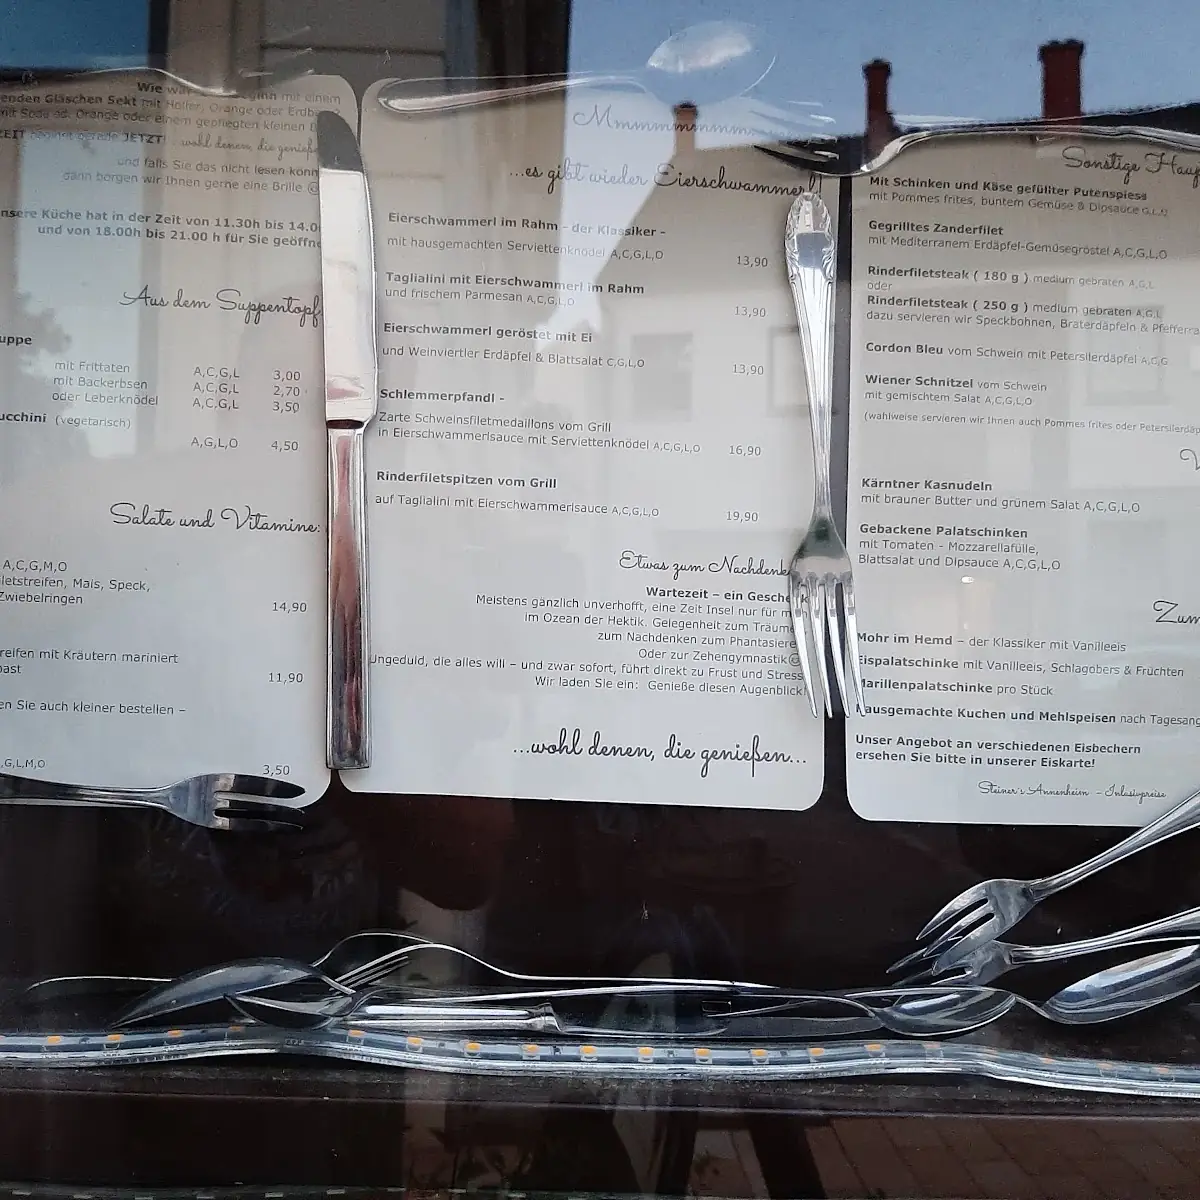 Wie
enden Gläschen Sekt mit Holler, Orange oder
mit Soda od. Orange oder einem gepflegten kleinen
beginnt gerade JETZT! wohl denen, die genieß
und falls Sie das nicht lesen könn
dann borgen wir Ihnen gerne eine Brille ☺
nsere Küche hat in der Zeit von 11.30h bis 14.0
und von 18.00h bis 21.00 h für Sie geöffne
Aus dem Suppentopf
uppe
mit Frittaten A,C,G,L 3,00
mit Backerbsen A,C,G,L 2,70
oder Leberknödel A,C,G,L 3,50
ucchini (vegetarisch)
A,G,L,O 4,50
Salate und Vitamine:
A,C,G,M,O
iletstreifen, Mais, Speck,
Zwiebelringen
14,90
reifen mit Kräutern mariniert
oast
11,90
en Sie auch kleiner bestellen –
,G,L,M,O 3,50
...es gibt wieder Eierschwammerl!
Eierschwammerl im Rahm - der Klassiker -
mit hausgemachten Serviettenknödel A,C,G,L,O 13,90
Taglialini mit Eierschwammerl im Rahm
und frischem Parmesan A,C,G,L,O
13,90
Eierschwammerl geröstet mit Ei
und Weinviertler Erdäpfel & Blattsalat C,G,L,O
13,90
Schlemmerpfandl -
Zarte Schweinsfiletmedaillons vom Grill
in Eierschwammerlsauce mit Serviettenknödel A,C,G,L,O 16,90
Rinderfiletspitzen vom Grill
auf Taglialini mit Eierschwammerlsauce A,C,G,L,O 19,90
Etwas zum Nachdenk
Wartezeit – ein Gesche k
Meistens gänzlich unverhofft, eine Zeit Insel nur für m
im Ozean der Hektik. Gelegenheit zum Träume
zum Nachdenken zum Phantasiere
Oder zur Zehengymnastik☺
Ungeduld, die alles will – und zwar sofort, führt direkt zu Frust und Stress
Wir laden Sie ein: Genieße diesen Augenblick!
...wohl denen, die genießen...
Sonstige Haup
Mit Schinken und Käse gefüllter Putenspiess
mit Pommes frites, buntem Gemüse & Dipsauce
Gegrilltes Zanderfilet
mit Mediterranem Erdäpfel-Gemüsegröstel A,C,G,L,O
Rinderfiletsteak ( 180 g ) medium gebraten A,G,L
oder
Rinderfiletsteak ( 250 g ) medium gebraten A,G,L
dazu servieren wir Speckbohnen, Braterdäpfeln & Pfefferra
Cordon Bleu vom Schwein mit Petersilerdäpfel A,C,G
Wiener Schnitzel vom Schwein
mit gemischtem Salat A,C,G,L,O
(wahlweise servieren wir Ihnen auch Pommes frites oder Petersilerdäp
V
Kärntner Kasnudeln
mit brauner Butter und grünem Salat A,C,G,L,O
Gebackene Palatschinken
mit Tomaten - Mozzarellafülle,
Blattsalat und Dipsauce A,C,G,L,O
Zum
Mohr im Hemd – der Klassiker mit Vanilleeis
Eispalatschinke mit Vanilleeis, Schlagobers & Früchten
Marillenpalatschinke pro Stück
Hausgemachte Kuchen und Mehlspeisen nach Tagesang
Unser Angebot an verschiedenen Eisbechern
ersehen Sie bitte in unserer Eiskarte!
Steiner's Annenheim – Inklusivpreise